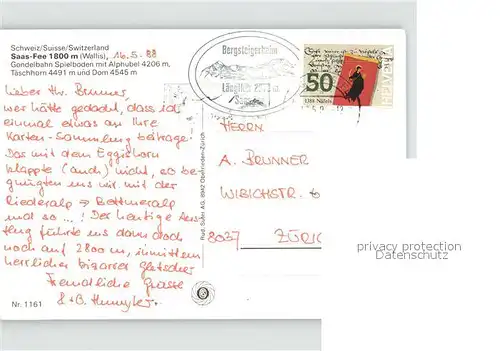 Schweiz/Suisse/Switzerland
Saas-Fee 1800 m (Wallis), 16.5.88
Gondelbahn Spielboden mit Alphubel 4206 m,
Täschhorn 4491 m und Dom 4545 m
Lieber Hr. Brunner,
wer hätte gedacht, dass ich
einmal etwas an Ihre
Karten-Sammlung beitrage.
Das mit dem Eggishorn
klappte (auch) nicht, so be-
gnügten uns wir mit der
Riederalp → Bettmeralp
und so ...! Der heutige Aus-
flug führte uns dann doch
noch auf 2800 m, inmitten
herrlicher bizarrer Gletscher
Freundliche Grüsse
Nr. 1161
Rud. Suter AG, 8942 Oberrieden-Zürich
Bergsteigerheim
50
HELVETIA
1388 Näfels
HERRN
A. BRUNNER
WIBICHSTR.
8037 ZÜRI
privacy protection
Watermark (not visible in the